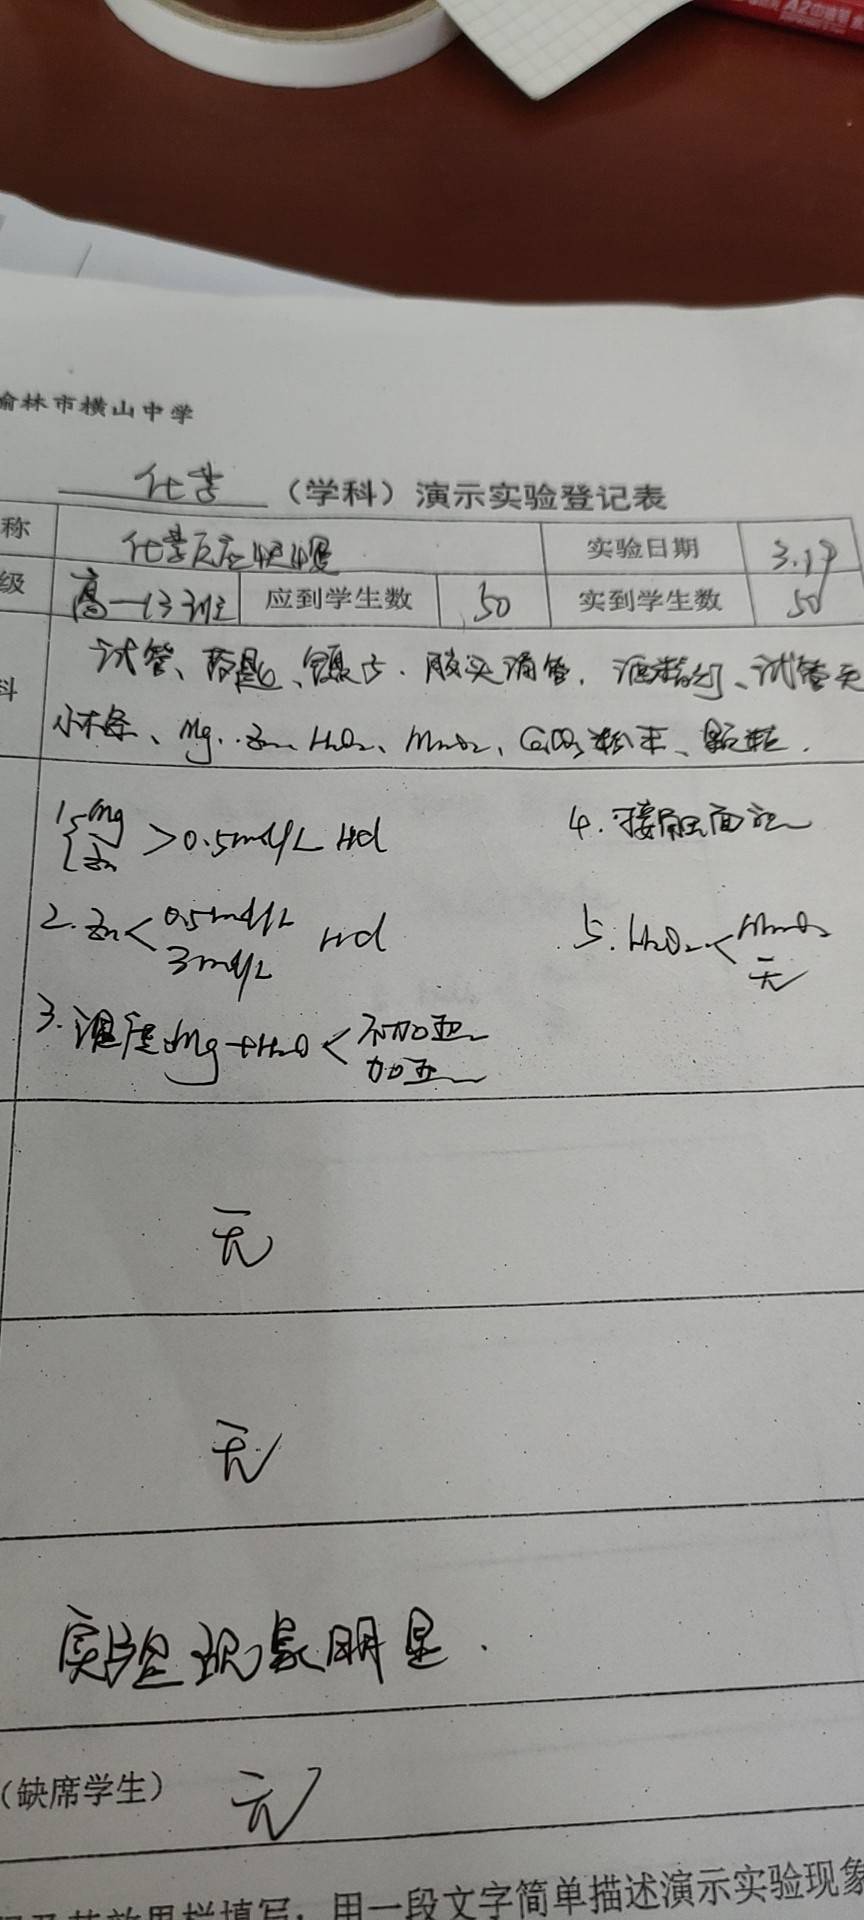 榆林市横山中学
化学（学科）演示实验登记表
称 化学反应快慢 实验日期 3.19
级 高一13班 应到学生数 50 实到学生数 50
料 试管、药匙、镊子、胶头滴管、酒精灯、试管夹
小木条、Mg、Zn、H₂O₂、MnO₂、CaCO₃粉末、颗粒.
1. { Mg Zn > 0.5mol/L HCl
4. 接触面积
2. Zn < 0.5mol/L 3mol/L HCl
5. H₂O₂ < MnO₂ 无
3. 温度 Mg+H₂O < 不加热 加热
无
无
实验现象明显.
（缺席学生） 无
效果栏填写，用一段文字简单描述演示实验现象